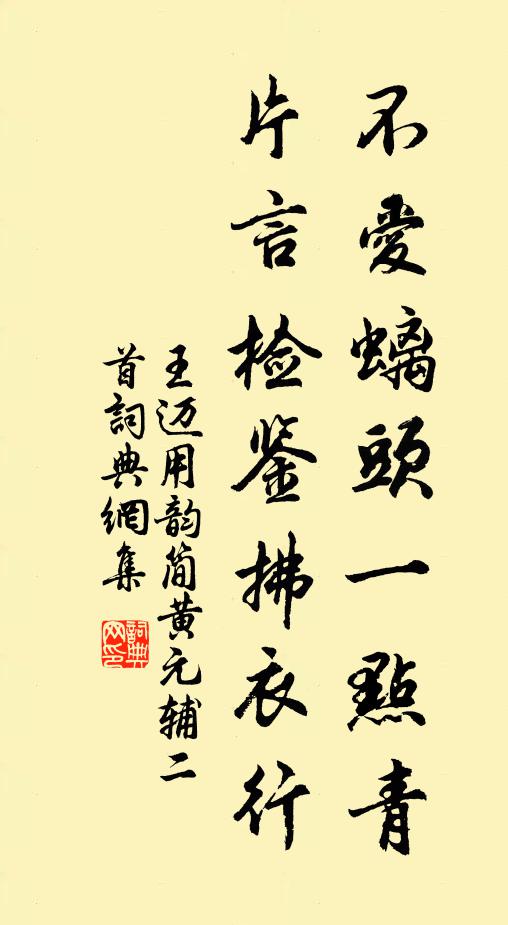 不愛螭頭一點青
片言检鉴拂衣行
王迈用韵简黄元辅二
首詞典網集
詞典
网印